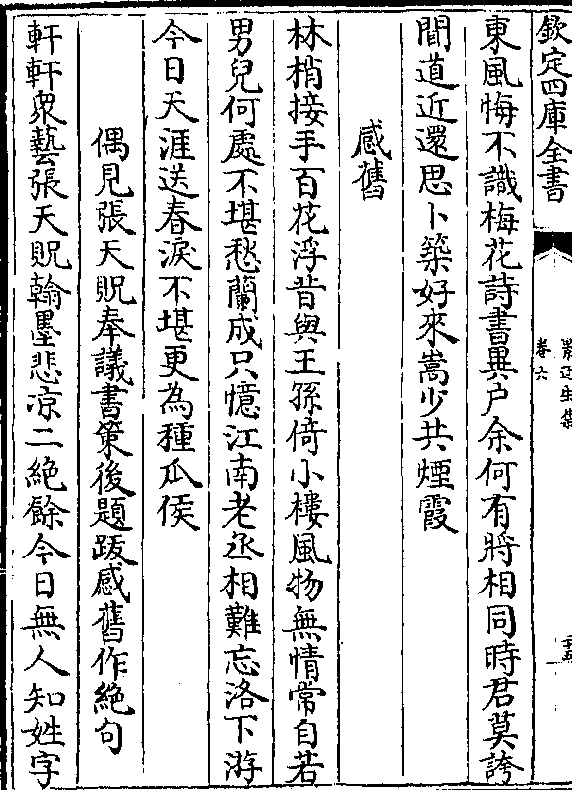 欽定四庫全書
卷六
東風悔不識梅花詩書異户余何有將相同時君莫誇
間道近還思卜築好來嵩少共煙霞
感舊
林梢接手百花浮昔與王孫倚小樓風物無情常自若
男兒何處不堪愁蘭成只憶江南老丞相難忘洛下游
今日天涯送春淚不堪更為種瓜侯
偶見張天貺奉議書策後題跋感舊作絶句
軒軒衆藝張天貺翰墨悲凉二絶餘今日無人知姓字